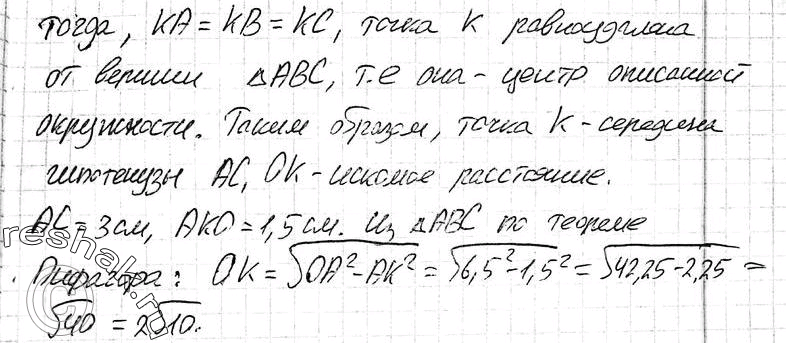 тогда, KA = KB = KC, точка K равноудалена
от вершин △ABC, т.е она - центр описанной
окружности. Таким образом, точка K - середина
гипотенузы AC, OK - искомое расстояние.
AC = 3 см, AKO = 1,5 см. Из △ABC по теореме
Пифагора: OK = √OA² - AK² = √6,5² - 1,5² = √42,25 - 2,25 =
√40 = 2√10.
reshak.ru